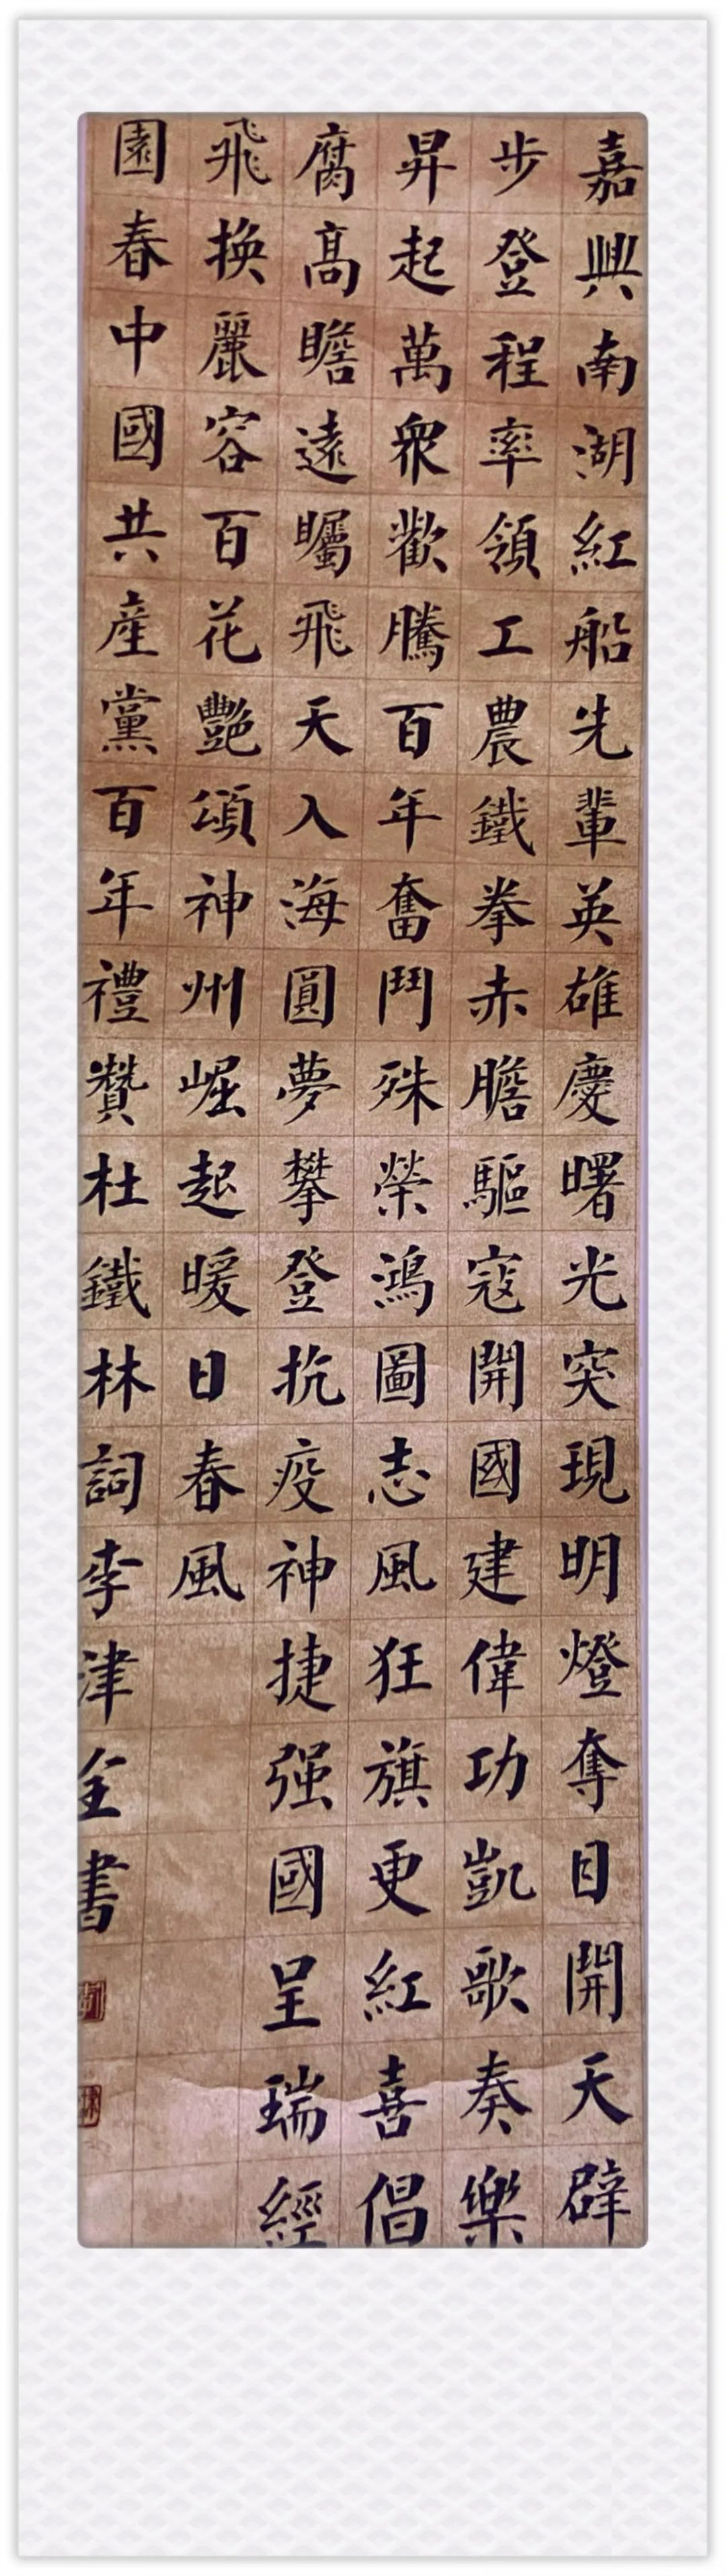 嘉興南湖紅船先輩英雄慶曙光突現明燈奪目開天辟
步登程率領工農鐵拳赤膽驅寇開國建偉功凱歌奏樂
昇起萬眾歡騰百年奮鬥殊榮鴻圖志風狂旗更紅喜倡
腐高瞻遠矚飛天入海圓夢攀登抗疫神捷强國呈瑞經
飛換麗容百花艷頌神州崛起暖日春風
園春中國共產黨百年禮贊杜鐵林詞李津全書